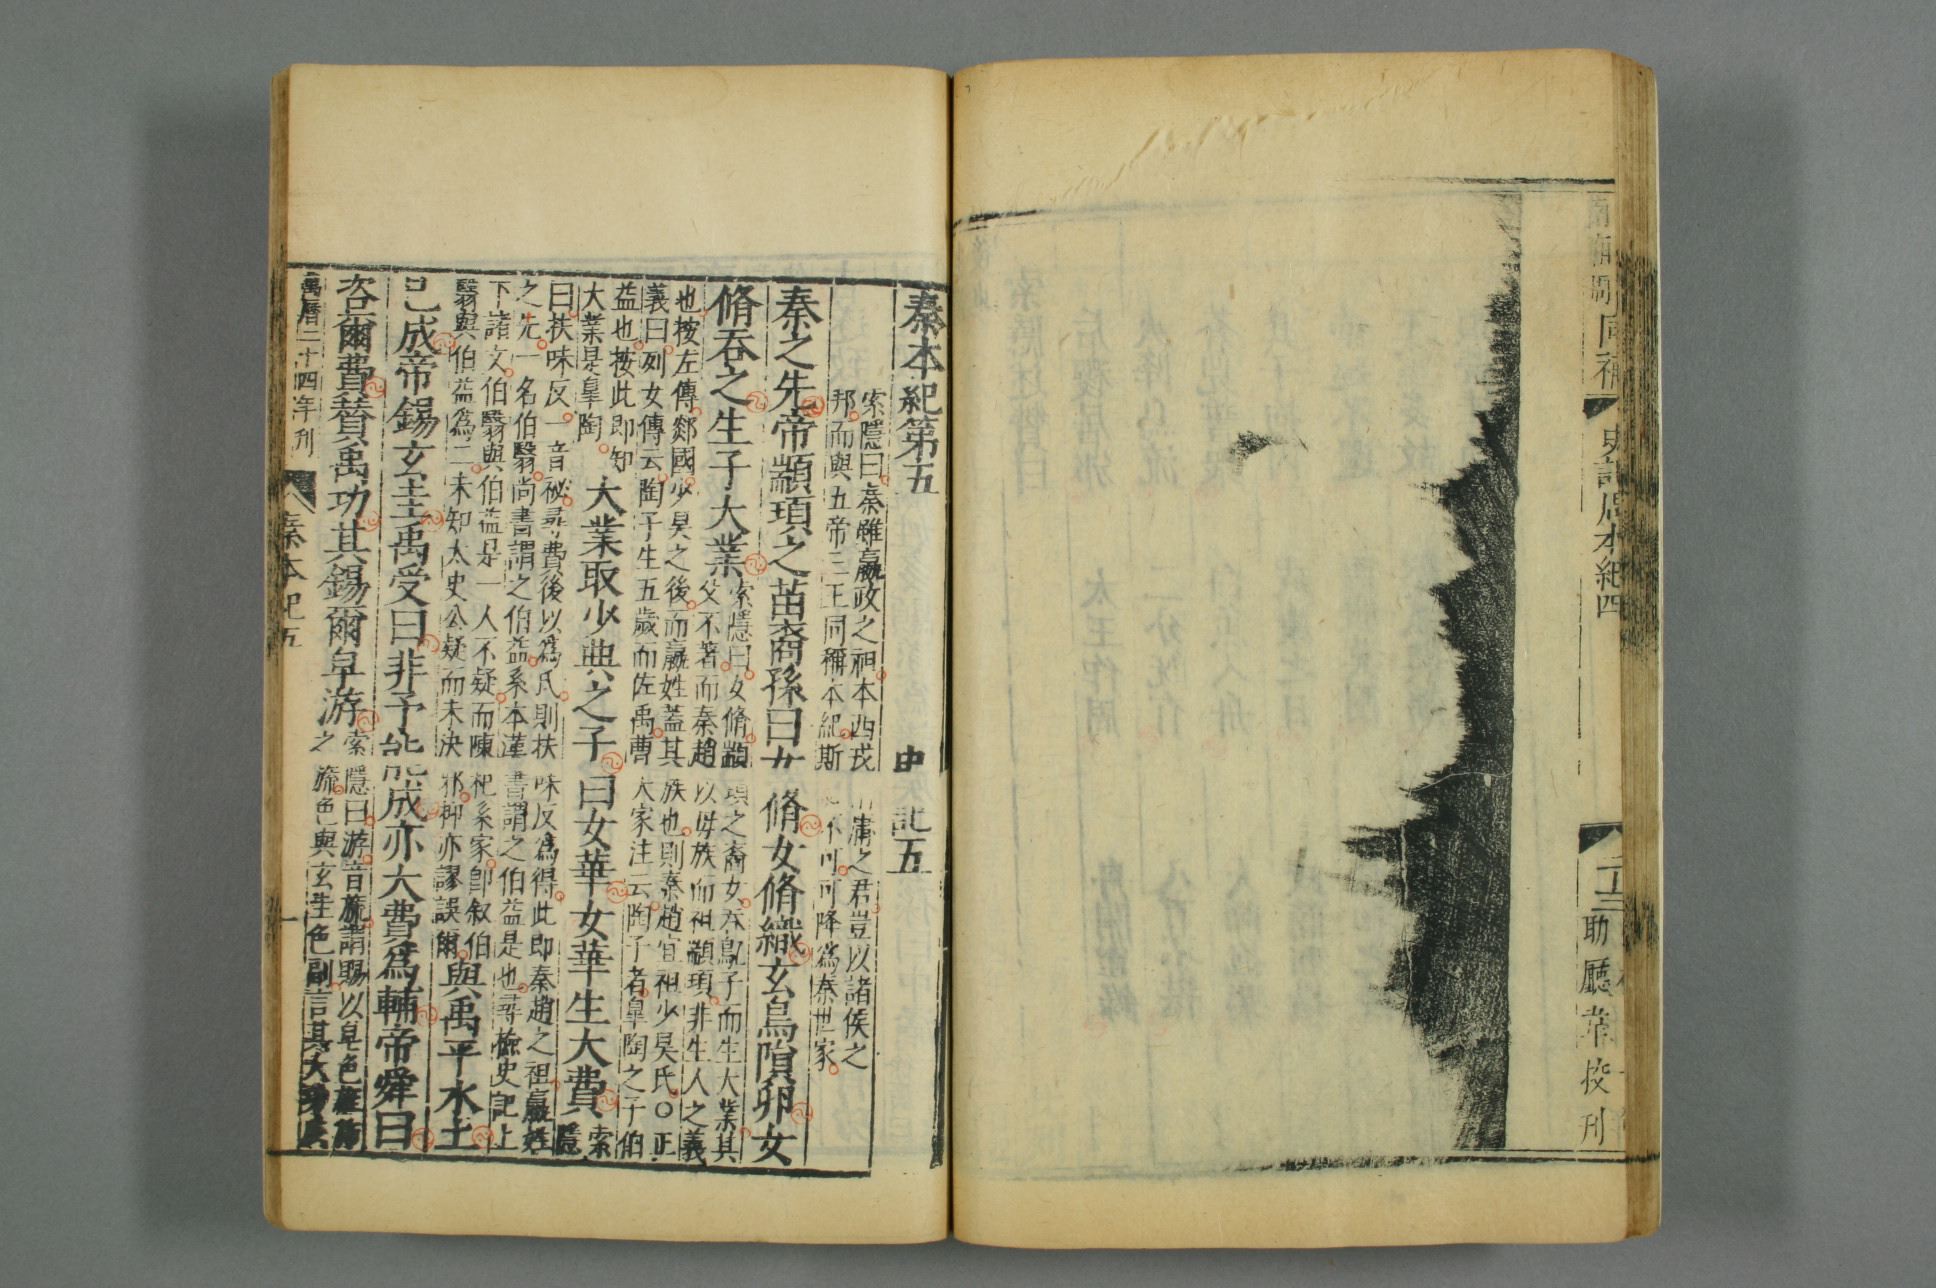 史記周本紀四
二十三
助廳
校刊
秦本紀第五 史記五
索隱曰秦雖嬴政之祖本西戎附庸之君豈以諸侯之
邦而與五帝三王同稱本紀斯必不可可降為秦世家
秦之先帝顓頊之苗裔孫曰女脩女脩織玄鳥隕卵女
脩吞之生子大業
索隱曰女脩顓頊之裔女吞鳦子而生大業其
父不著而秦趙以母族而祖顓頊非生人之義
也按左傳郯國少昊之後而嬴姓蓋其族也則秦趙宜祖少昊氏○正
義曰列女傳云陶子生五歲而佐禹曹大家注云陶子者臯陶之子伯
益也按此即知
大業是臯陶
大業取少典之子曰女華女華生大費
索
隱
曰扶味反一音祕尋費後以為氏則扶味反為得此即秦趙之祖嬴姓
之先一名伯翳尚書謂之伯益系本漢書謂之伯益是也尋檢史記上
下諸文伯翳與伯益是一人不疑而陳杞系家即叙伯
翳與伯益為二未知太史公疑而未決邪抑亦謬誤爾
與禹平水土
已成帝錫玄圭禹受曰非予能成亦大費為輔帝舜曰
咨爾費贊禹功其錫爾皁游
索隱曰游音旒謂賜以皁色旌旆
之旒色與玄圭色副言其大功成
萬曆二十四年刊
秦本紀五
一